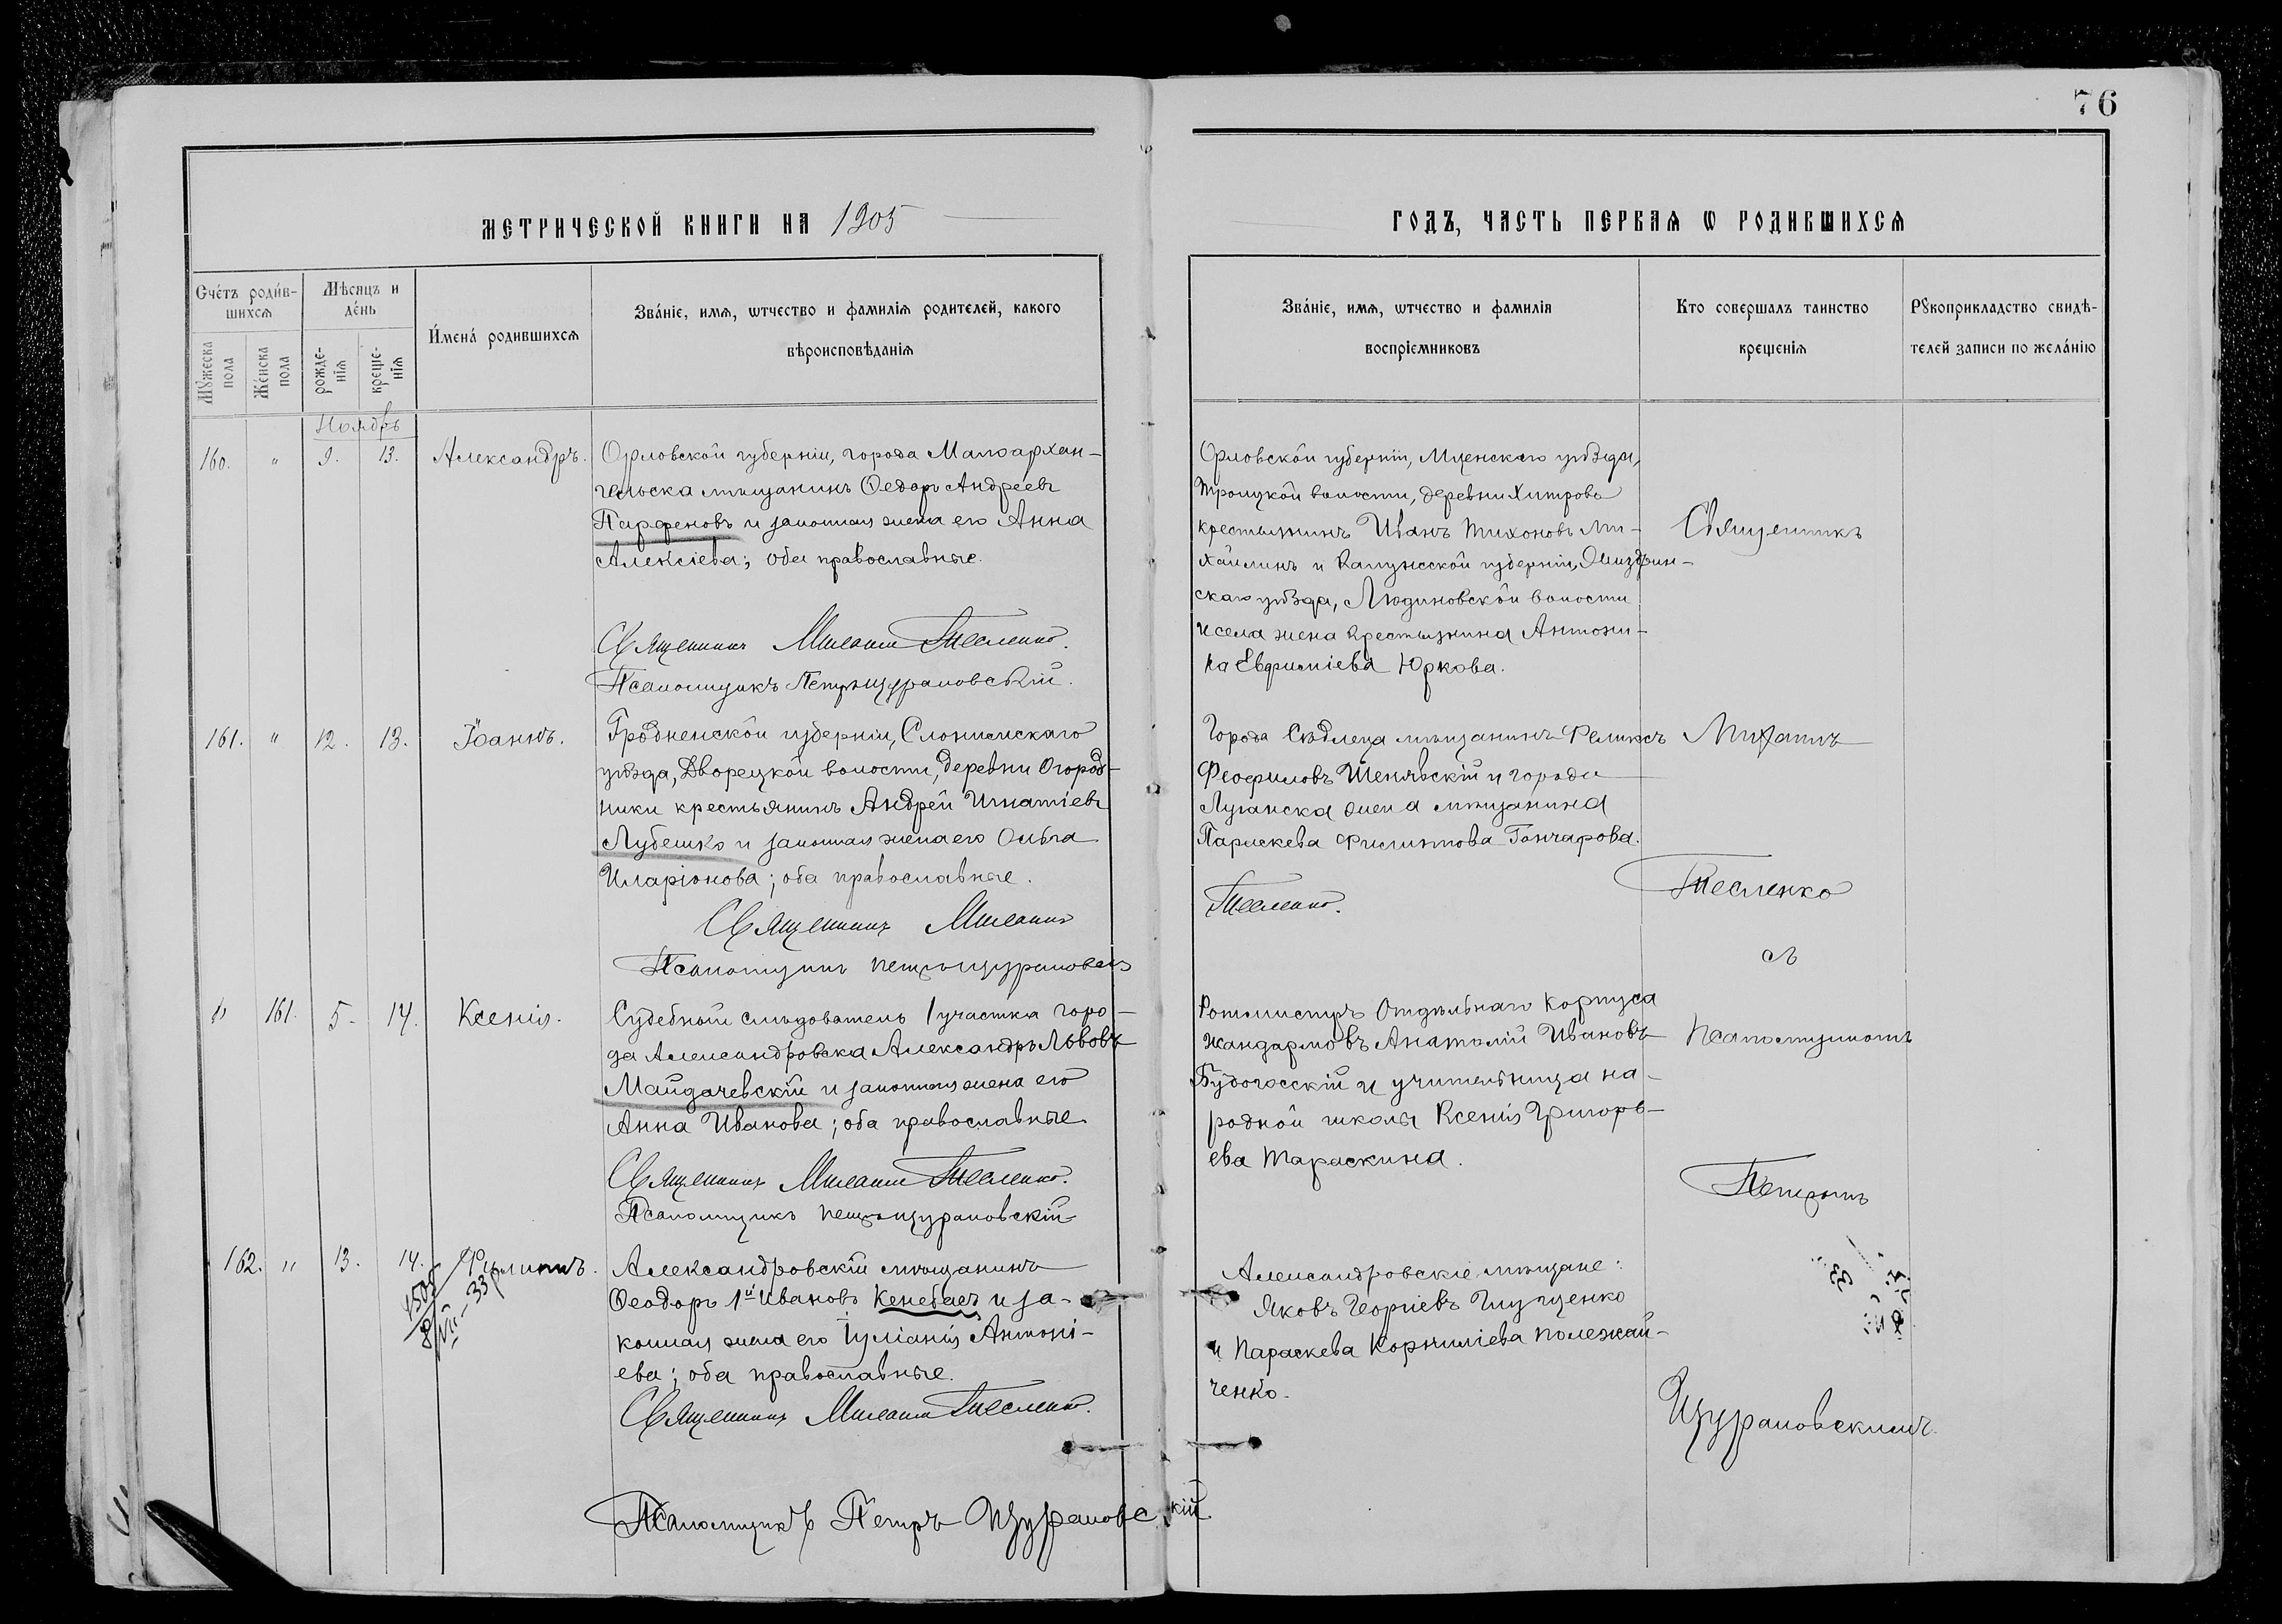 76
МЕТРИЧЕСКОЙ КНИГИ НА 1905
ГОДЪ, ЧАСТЬ ПЕРВАЯ Ѡ РОДИВШИХСЯ
Счётъ роди́в-
шихсѧ
Мꙋжеска пола
Же́нска пола
Мѣсѧцъ и
де́нь
рожде-
нїѧ
креще-
нїѧ
И́мена́ родившихсѧ
Зва́нїе, имѧ, ѡтчество и фамилїѧ родителей, какого
вѣроисповѣданїѧ
Зва́нїе, имѧ, ѡтчество и фамилїѧ
воспрїемниковъ
Кто совершалъ таинство
крещенїѧ
Рꙋкоприкладство свидѣ-
телей записи по жела́нїю
Ноябрь
160. " 9. 13. Александръ.
Орловской губерніи, города Малоархан-
гельска мѣщанинъ Ѳедоръ Андреевъ
Парфеновъ и законная жена его Анна
Алексіева; оба православные.
Священникъ Михаилъ Тесленко.
Псаломщикъ Петръ Щурановскій.
Орловской губерніи, Мценскаго уѣзда,
Троицкой волости, деревни Хитрова
крестьянинъ Иванъ Тихоновъ Ми-
хайлинъ и Калужской губерніи, Жиздрин-
скаго уѣзда, Людиновской волости
и села жена крестьянина Антони-
на Евфиміева Юркова.
Священникъ
161. " 12. 13. Іоаннъ.
Гродненской губерніи, Слонимскаго
уѣзда, Дворецкой волости, деревни Огород-
ники крестьянинъ Андрей Игнатіевъ
Лубешко и законная жена его Ольга
Иларіонова; оба православные.
Священникъ Михаилъ
Псаломщикъ Петръ Щурановскій
Города Сѣдлеца мѣщанинъ Феликсъ
Феофиловъ Шенявскій и города
Луганска жена мѣщанина
Параскева Филиппова Гончарова.
Тесленко.
Михаилъ
Тесленко
съ
" 161. 5. 14. Ксенія.
Судебный слѣдователь 1 участка горо-
да Александровска Александръ Львовъ
Майдачевскій и законная жена его
Анна Иванова; оба православные
Священникъ Михаилъ Тесленко.
Псаломщикъ Петръ Щурановскій
Ротмистръ Отдѣльнаго Корпуса
Жандармовъ Анатолій Ивановъ
Будогосскій и учительница на-
родной школы Ксенія Григорь-
ева Тараскина.
Псаломщикомъ
Петромъ
162. " 13. 14. Филиппъ.
Александровскій мѣщанинъ
Ѳеодоръ 1й Ивановъ Кенебасъ и за-
конная жена его Іуліанія Антоні-
ева; оба православные.
Священникъ Михаилъ Тесленко.
Псаломщикъ Петръ Щурановскій.
Александровскіе мѣщане:
Яковъ Георгіевъ Глущенко
и Параскева Корниліева Полежай-
ченко.
Щурановскимъ.